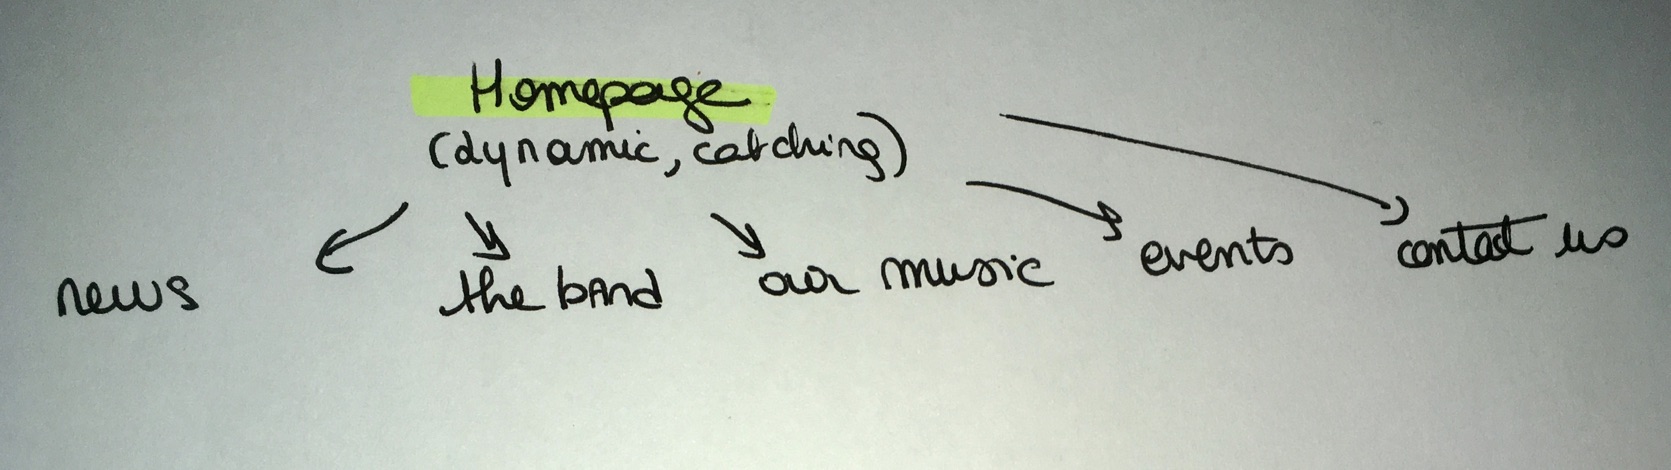 Homepage
(dynamic, catching)
news
the band
our music
events
contact us